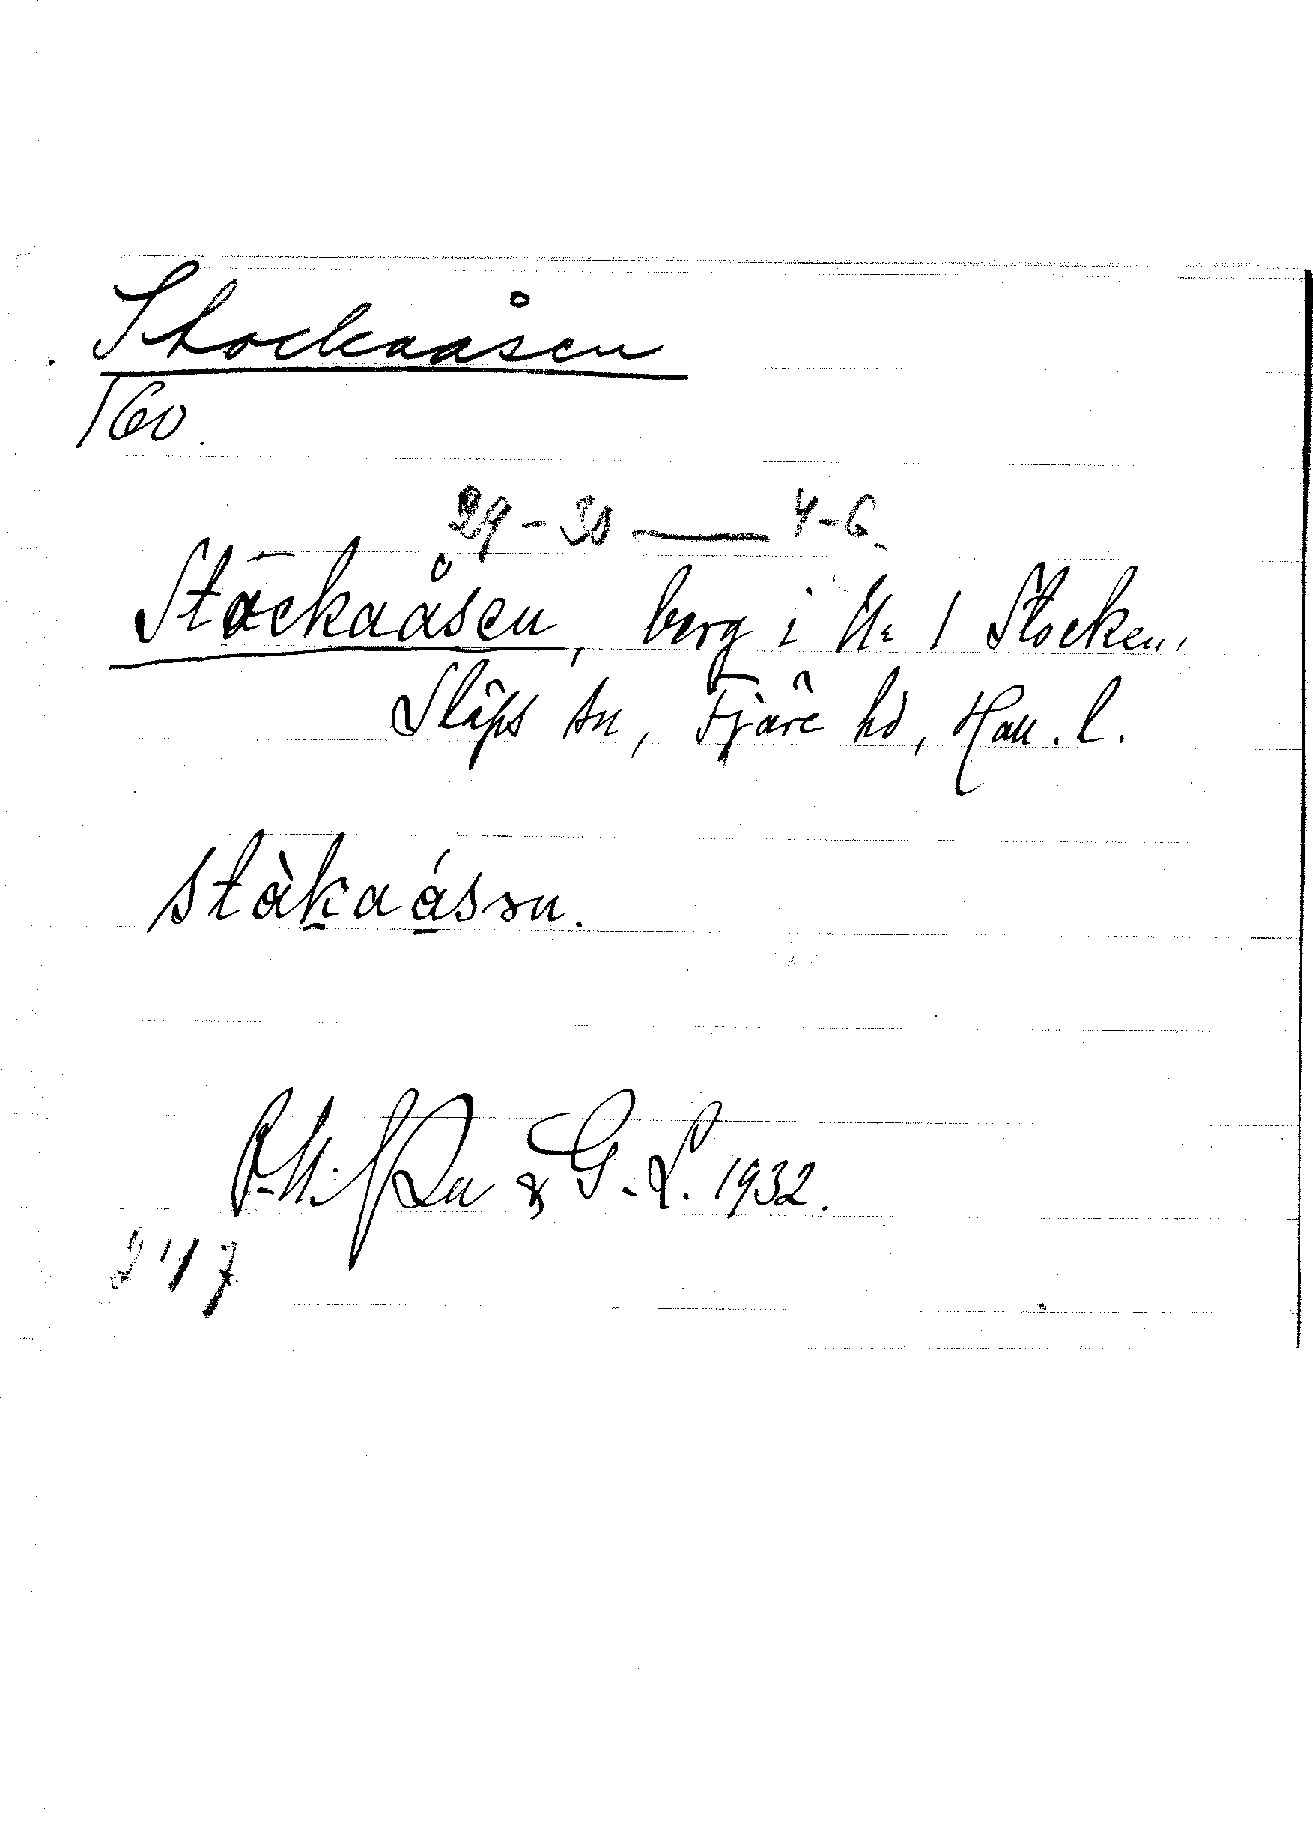 Stockaåsen
160.
29-30 — 4-6.
Stackaåsen, berg i Nr 1 Stocken,
Släps sn, Fjäre hd, Hall. l.
stàkaásən.
& G. L. 1932.
247